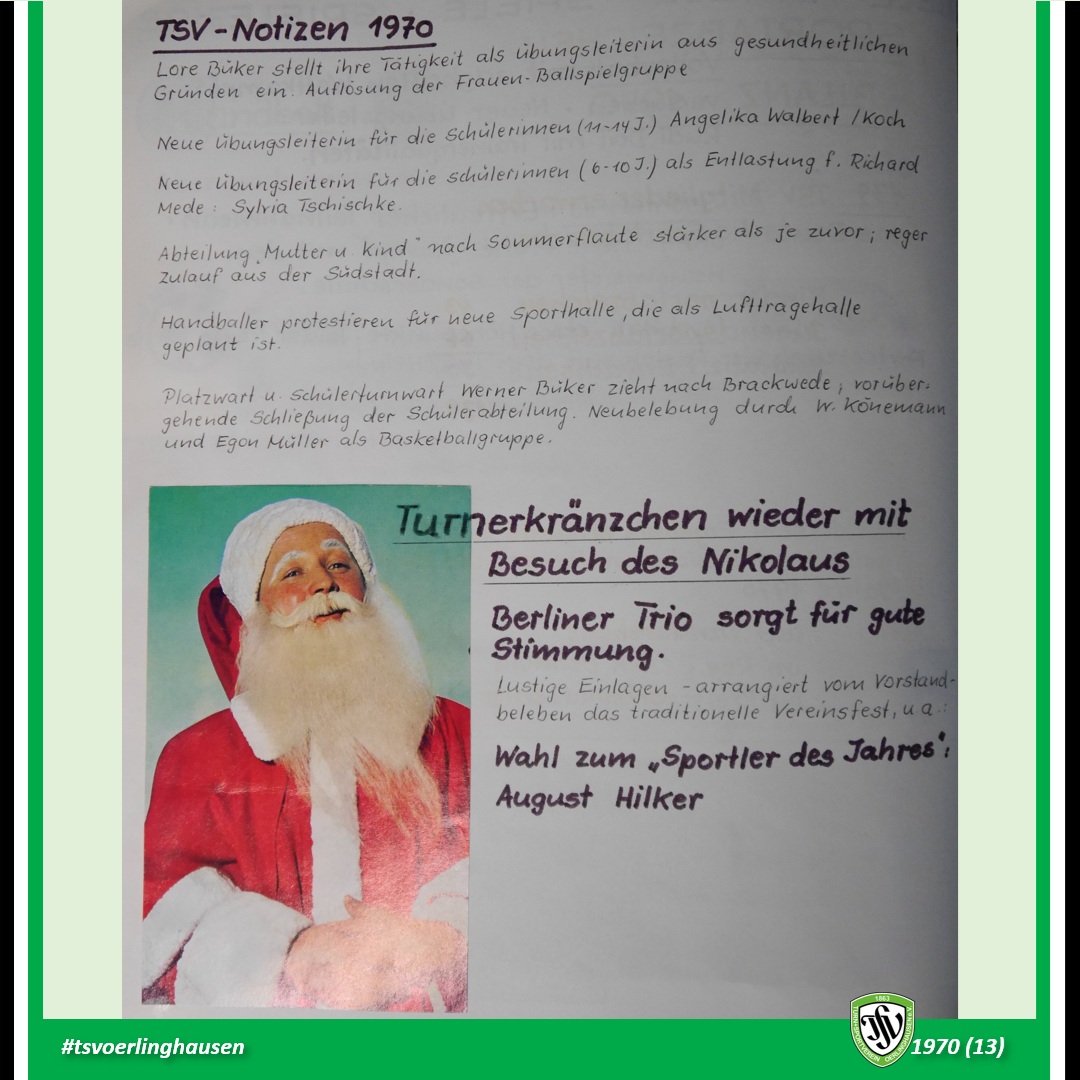 TSV-Notizen 1970
Lore Büker stellt ihre Tätigkeit als Übungsleiterin aus gesundheitlichen
Gründen ein. Auflösung der Frauen-Ballspielgruppe
Neue Übungsleiterin für die Schülerinnen (11-14 J.) Angelika Walbert / Koch
Neue Übungsleiterin für die Schülerinnen (6-10 J.) als Entlastung f. Richard
Mede: Sylvia Tschischke.
Abteilung „Mutter u. Kind" nach Sommerflaute stärker als je zuvor; reger
Zulauf aus der Südstadt.
Handballer protestieren für neue Sporthalle, die als Lufttragehalle
geplant ist.
Platzwart u. Schülerturnwart Werner Büker zieht nach Brackwede; vorüber-
gehende Schließung der Schülerabteilung. Neubelebung durch W. Könemann
und Egon Müller als Basketballgruppe.
Turnerkränzchen wieder mit
Besuch des Nikolaus
Berliner Trio sorgt für gute
Stimmung.
Lustige Einlagen - arrangiert vom Vorstand -
beleben das traditionelle Vereinsfest, u.a.:
Wahl zum „Sportler des Jahres":
August Hilker
#tsvoerlinghausen
1863
TSV
1970 (13)